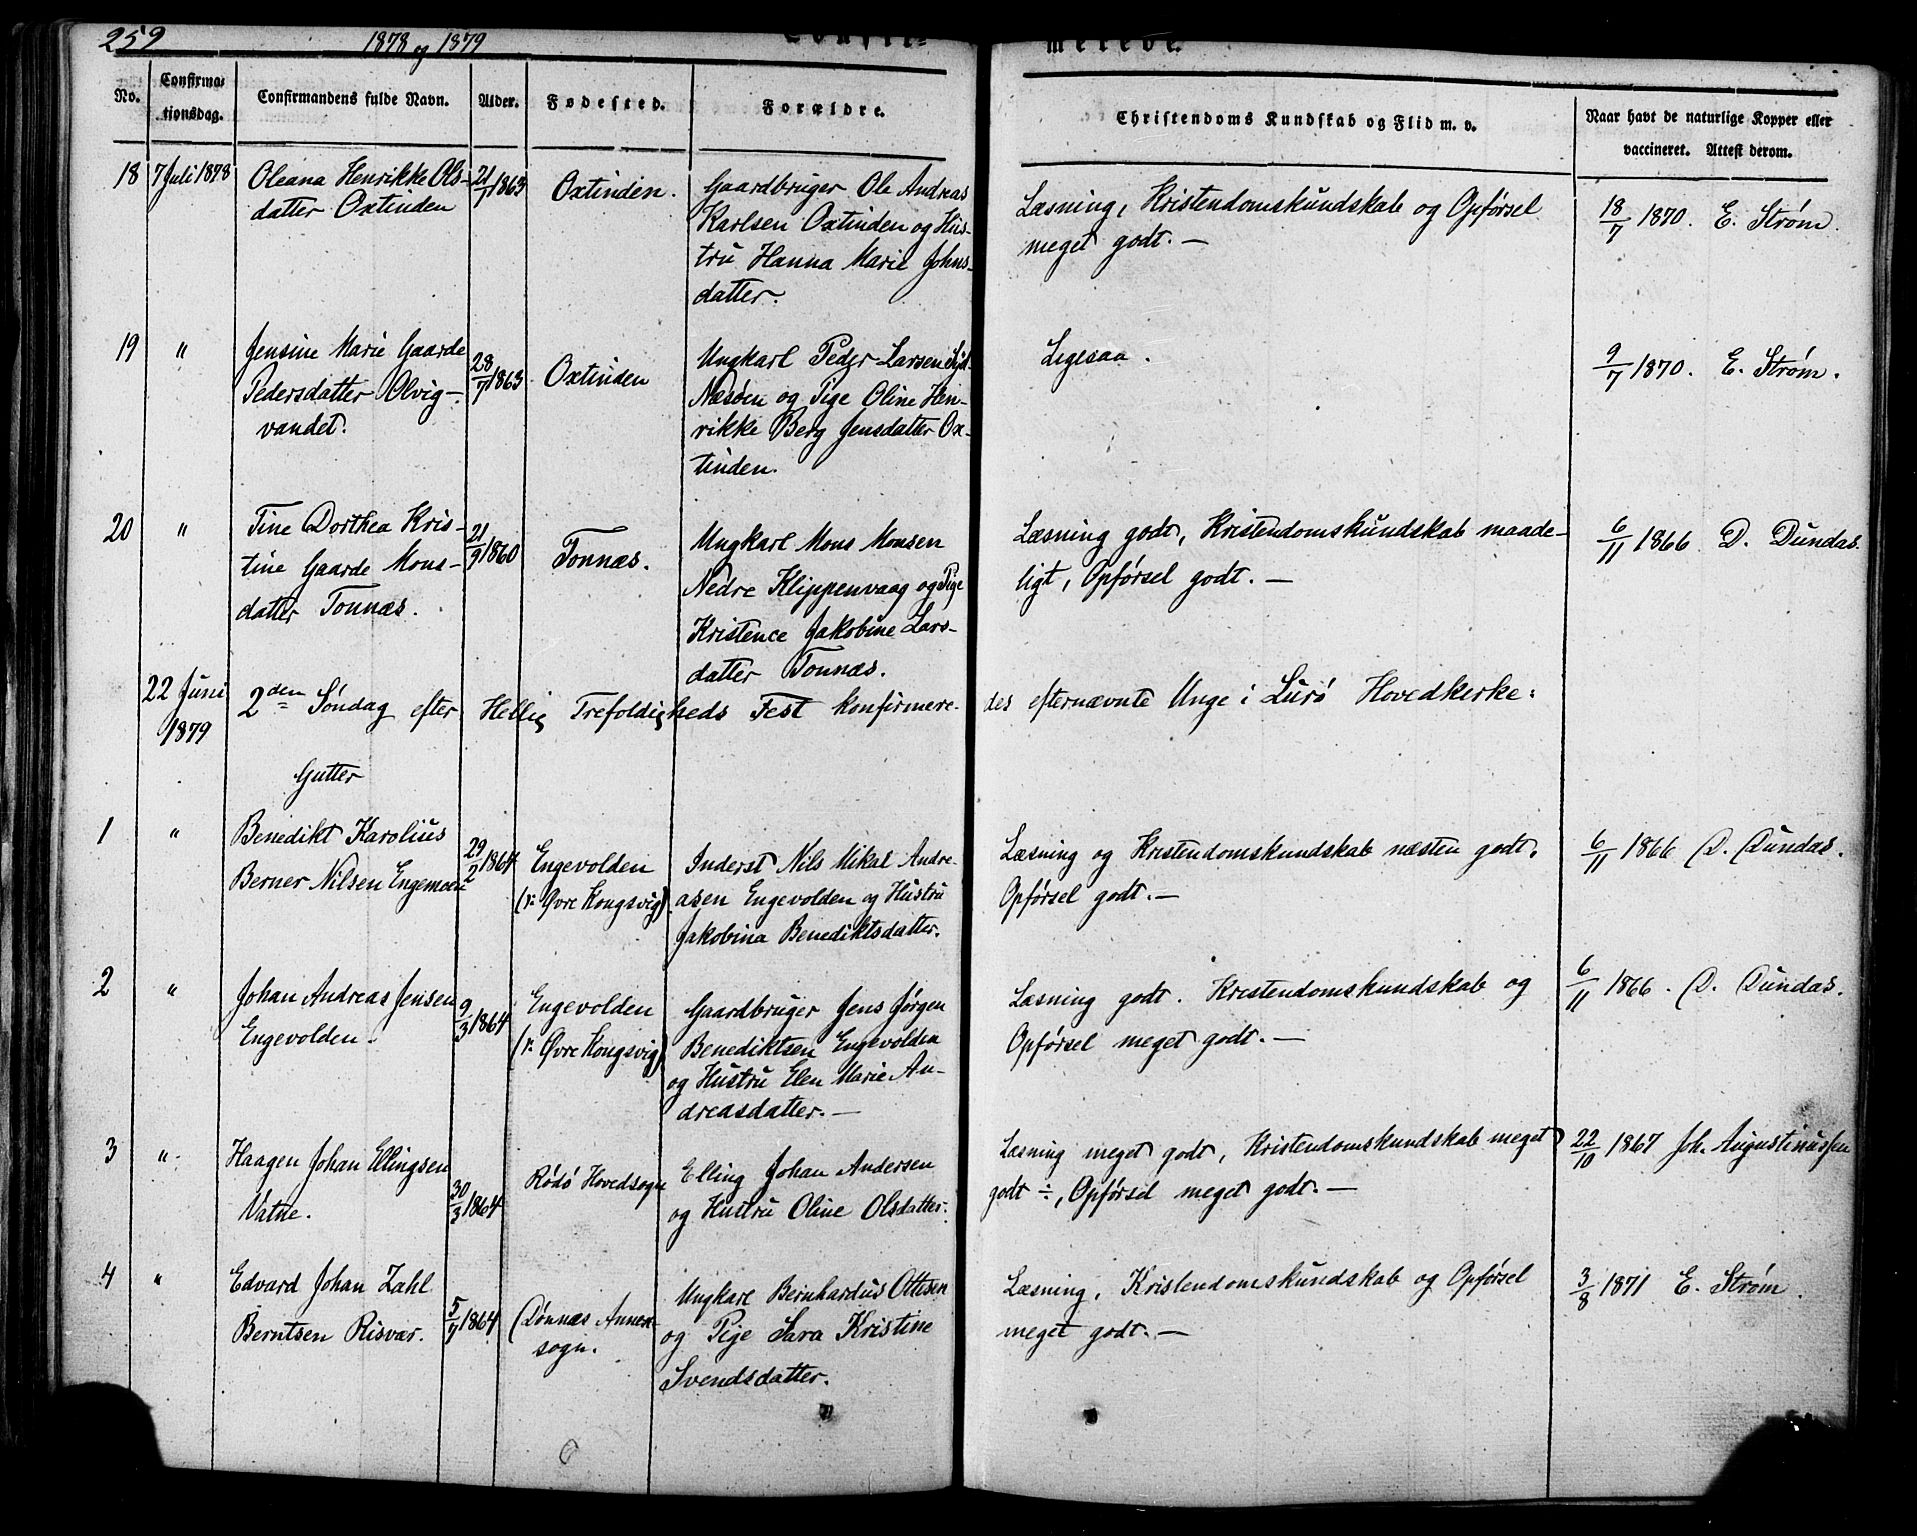 259 1878 og 1879 Confir= merede.
No. Confirma: tionsdag. Confirmandens fulde Navn. Alder. Fødested. Forældre. Christendoms Kundskab og Flid m. v. Naar havt de naturlige Kopper eller vaccineret. Attest derom.
18 7 Juli 1878 Oleana Henrikke Ols- 21/7 1863 Oxtinden. Gaardbruger Ole Andreas Læsning, Kristendomskundskab og Opførsel 18/7 1870. E. Strøm.
datter Oxtinden Karlsen Oxtinden og Hus- meget godt. —
tru Hanna Marie Johns-
datter.
19 " Jensine Marie Gaarde 28/7 1863 Oxtinden Ungkarl Peder Larsen Syd- Ligesaa. 9/7 1870. E. Strøm.
Pedersdatter Olvig- Næsøen og Pige Oline Hen-
vandet. rikke Berg Jensdatter Ox-
tinden.
20 " Tine Dorthea Kris- 21/9 1860 Tonnæs. Ungkarl Mons Monsen Læsning godt, Kristendomskundskab maade- 6/11 1866 D. Dundas.
tine Gaarde Mons- Nedre Klippenvaag og Pige ligt, Opførsel godt. —
datter Tonnæs. Kristence Jakobine Lars-
datter Tonnæs.
22 Juni 2den Søndag efter Hellig Trefoldigheds Fest konfirmere- des efternævnte Unge i Lurø Hovedkerke:
1879
Gutter
1 " Benedikt Karolius 29/2 1864 Engevolden Inderst Nils Mikal Andre- Læsning og Kristendomskundskab næsten godt. 6/11 1866 D. Dundas.
Berner Nilsen Engemoen (r: Øvre Kongsvig). asen Engevolden og Hustru Opførsel godt. —
Jakobina Benediktsdatter.
2 " Johan Andreas Jensen 9/3 1864 Engevolden Gaardbruger Jens Jørgen Læsning godt. Kristendomskundskab og 6/11 1866. D. Dundas.
Engevolden. (r: Øvre Kongsvig) Benediktsen Engevolden Opførsel meget godt. —
og Hustru Elen Marie An-
dreasdatter. —
3 " Haagen Johan Ellingsen 30/3 1864 Rødø Hovedsogn Elling Johan Andersen Læsning meget godt, Kristendomskundskab meget 22/10 1867 Joh. Augustinussen
Vatne. og Hustru Oline Olsdatter. godt ÷, Opførsel meget godt. —
4 " Edvard Johan Zahl 5/7 1864 Dønnæs Annex- Ungkarl Bernhardus Ottesen Læsning, Kristendomskundskab og Opførsel 3/8 1871 E. Strøm.
Berntsen Risvær. sogn. og Pige Sara Kristine meget godt. —
Svendsdatter.